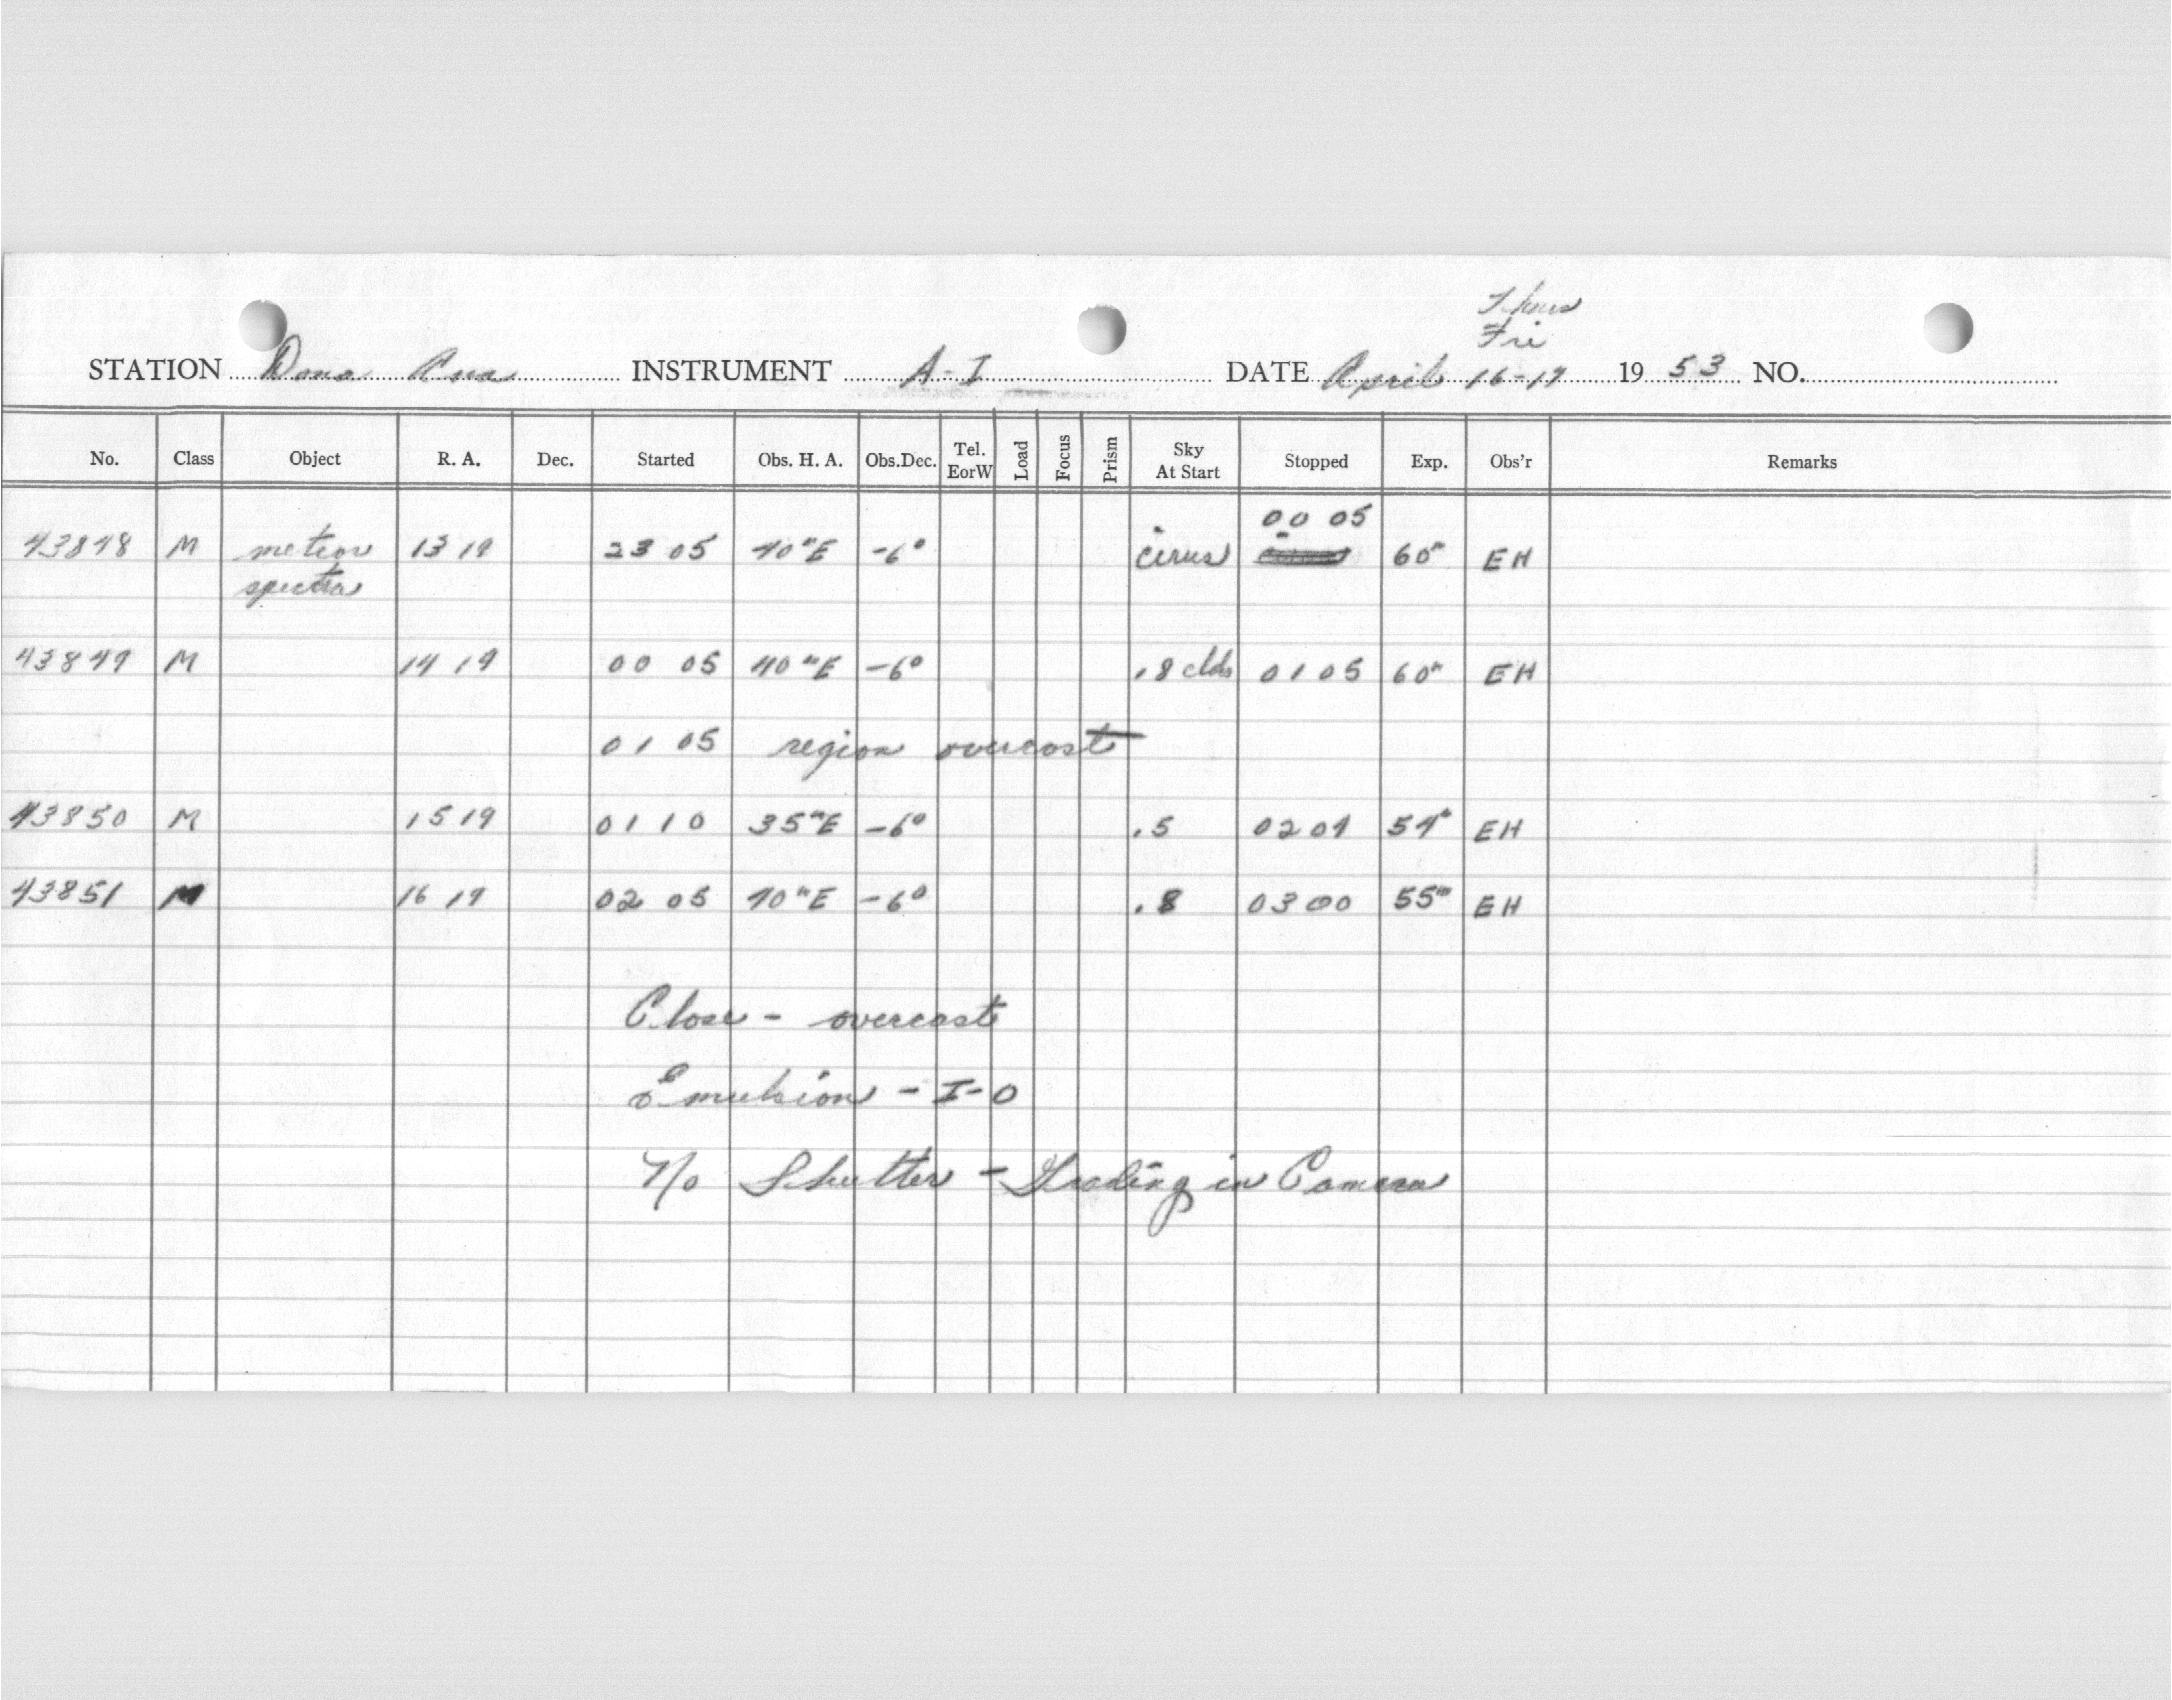 Thurs
Fri
STATION Dona Ana INSTRUMENT A-I DATE April 16-17 19 53 NO.
No. Class Object R. A. Dec. Started Obs. H. A. Obs.Dec. Tel. EorW Load Focus Prism Sky At Start Stopped Exp. Obs'r Remarks
00 05
43848 M meteor 13 19 23 05 40ᵐE -6° cirus 60ᵐ EH
spectra
43849 M 14 19 00 05 40ᵐE -6° .8 clds 01 05 60ᵐ EH
01 05 region overcast
43850 M 15 19 01 10 35ᵐE -6° .5 02 04 54ᵐ EH
43851 M 16 19 02 05 40ᵐE -6° .8 03 00 55ᵐ EH
Close - overcast
Emulsion - I-O
No Shutter - Grading in Camera